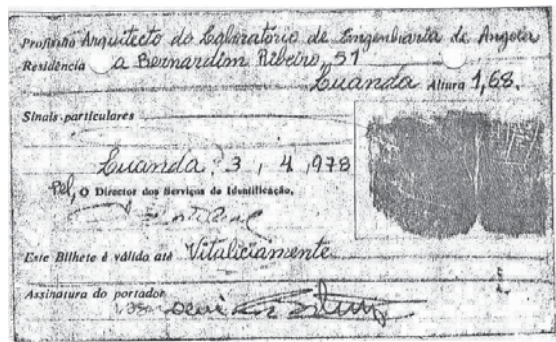 Profissão Arquitecto do Laboratório de Engenharia de Angola
Residência a Bernardim Ribeiro, 51
Luanda Altura 1,68.
Sinais particulares
Luanda, 3, 4, 978
Pel, O Director dos Serviços de Identificação,
Este Bilhete é válido até Vitaliciamente
Assinatura do portador